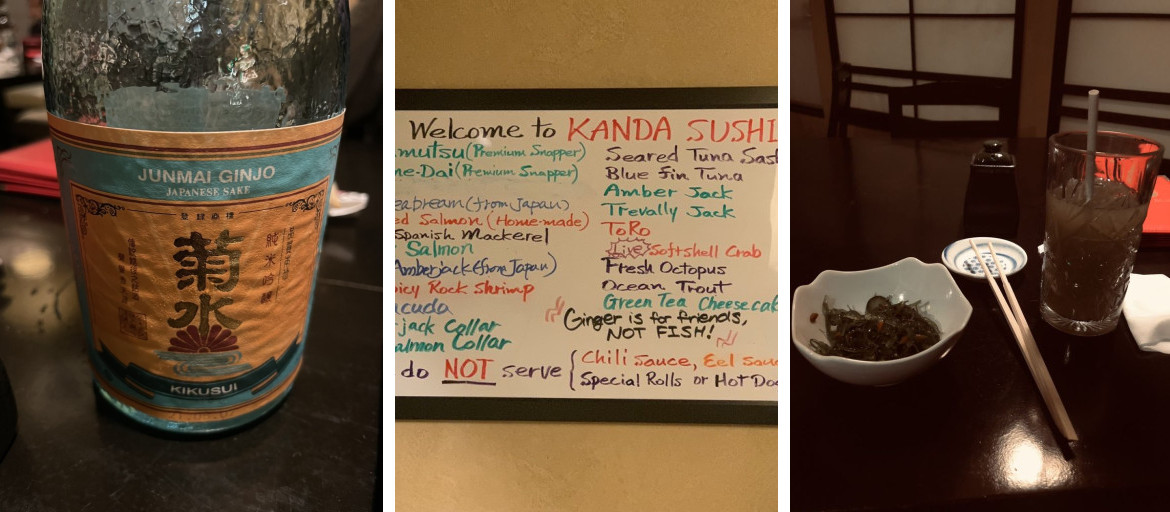 JUNMAI GINJO
JAPANESE SAKE
登録商標
菊水
純米吟醸
KIKUSUI
Welcome to KANDA SUSHI
mutsu (Premium Snapper)
me-Dai (Premium Snapper)
eabream (from Japan)
ed Salmon (Home-made)
Spanish Mackerel
Salmon
Amberjack (from Japan)
icy Rock Shrimp
acuda
rjack Collar
almon Collar
Seared Tuna Sas
Blue fin Tuna
Amber Jack
Trevally Jack
ToRo
Live Softshell Crab
Fresh Octopus
Ocean Trout
Green Tea Cheesecak
Ginger is for friends,
NOT FISH!
do NOT serve
Chili sauce, Eel sau
Special Rolls or Hot Do